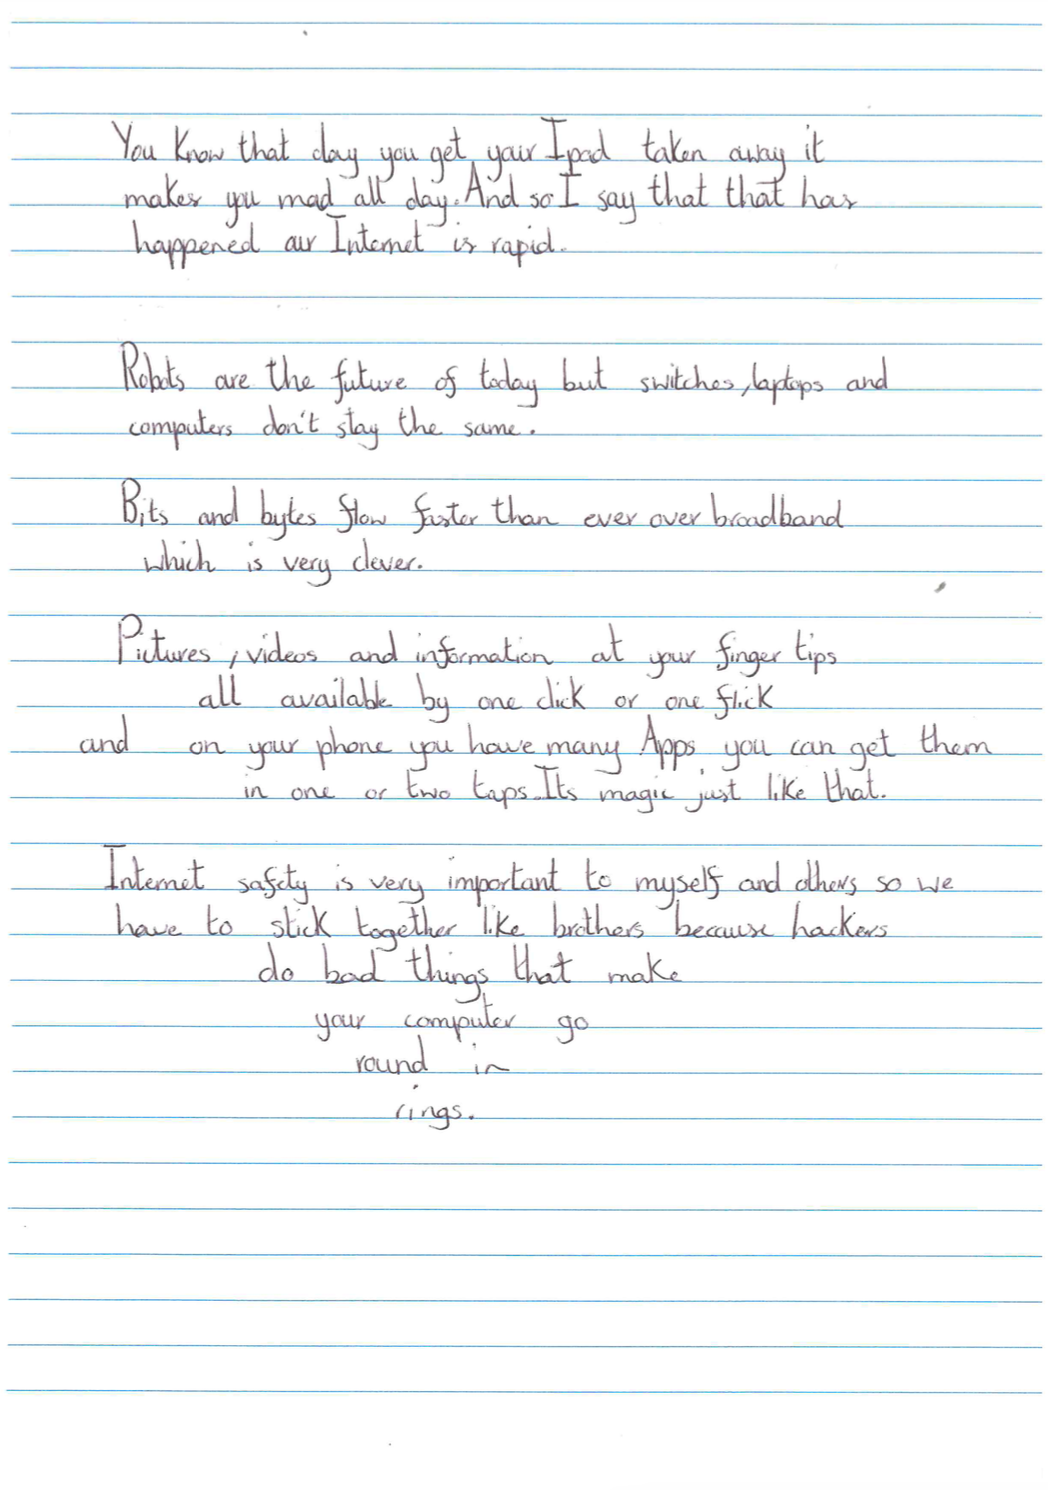 You Know that day you get your Ipad taken away it
makes you mad all day. And so I say that that has
happened our Internet is rapid.
Robots are the future of today but switches, laptops and
computers don't stay the same.
Bits and bytes flow faster than ever over broadband
which is very clever.
Pictures, videos and information at your finger tips
all available by one click or one flick
and on your phone you have many Apps you can get them
in one or two taps. Its magic just like that.
Internet safety is very important to myself and others so we
have to stick together like brothers because hackers
do bad things that make
your computer go
round in
rings.